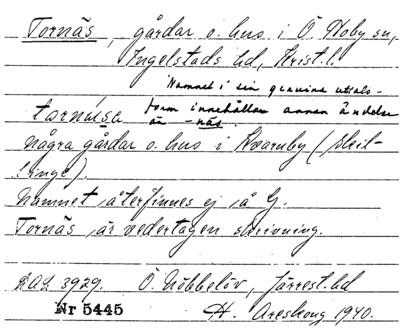 Tornäs, gårdar o. hus i Ö. Hoby sn,
Ingelstads hd, Krist. l.
Namnet i sin genuina uttals-
form innehåller annan ändelse
än -näs.
tornísa
några gårdar o. hus i Kvarnby (
linge).
Namnet återfinnes ej å G.
Tornäs är vedertagen skrivning.
RAÄ 3929. Ö. Nöbbelöv, Järrest. hd
Nr 5445 H. Areskoug 1940.